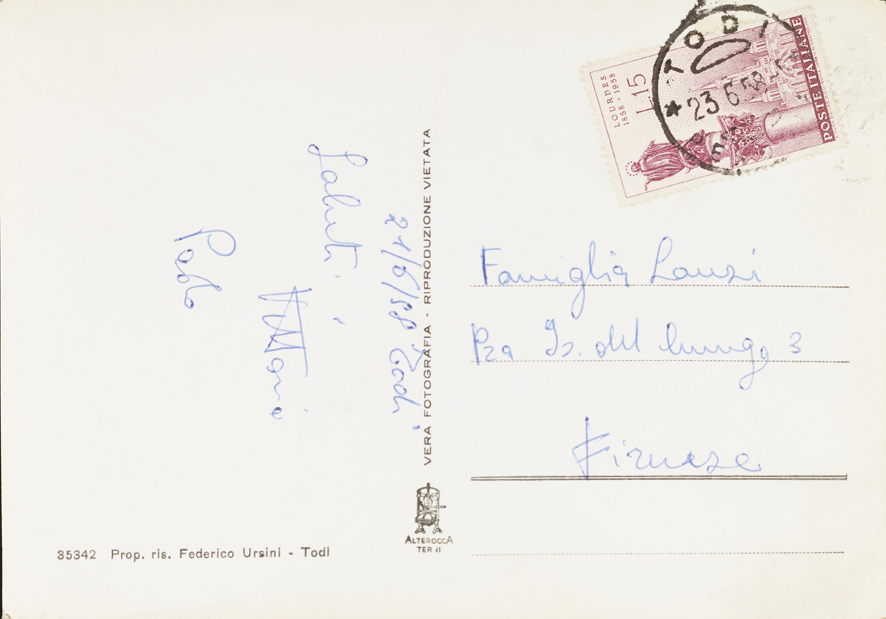 21/6/58 Todi
Saluti
Vittorio
Paolo
VERA FOTOGRAFIA - RIPRODUZIONE VIETATA
35342 Prop. ris. Federico Ursini - Todi
ALTEROCCA
TERNI
LOURDES
1858 - 1958
L. 15
POSTE ITALIANE
* TODI
23 6 58
Famiglia Lanzi
Pza Is. del lungo 3
Firenze